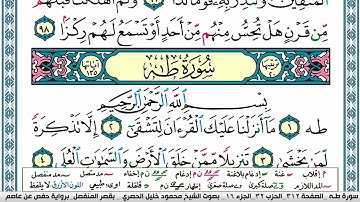 ٱلْمُتَّقِينَ وَتُنذِرَ بِهِۦ قَوْمًا لُّدًّا ٩٧ وَكَمْ أَهْلَكْنَا قَبْلَهُم
مِّن قَرْنٍ هَلْ تُحِسُّ مِنْهُم مِّنْ أَحَدٍ أَوْ تَسْمَعُ لَهُمْ رِكْزًۢا ٩٨
سُورَةُ طه
بِسْمِ ٱللَّهِ ٱلرَّحْمَٰنِ ٱلرَّحِيمِ
طه ١ مَآ أَنزَلْنَا عَلَيْكَ ٱلْقُرْءَانَ لِتَشْقَىٰٓ ٢ إِلَّا تَذْكِرَةً
لِّمَن يَخْشَىٰ ٣ تَنزِيلًا مِّمَّنْ خَلَقَ ٱلْأَرْضَ وَٱلسَّمَٰوَٰتِ ٱلْعُلَى ٤
سورة طه - الصفحة ٣١٢ الحزب ٣٢ الجزء ١٦ - بصوت الشيخ محمود خليل الحصري - بقصر المنفصل - برواية حفص عن عاصم